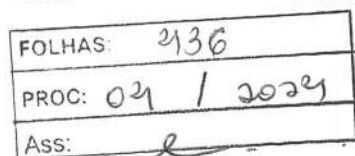 FOLHAS: 436
PROC: 04 / 2024
Ass: